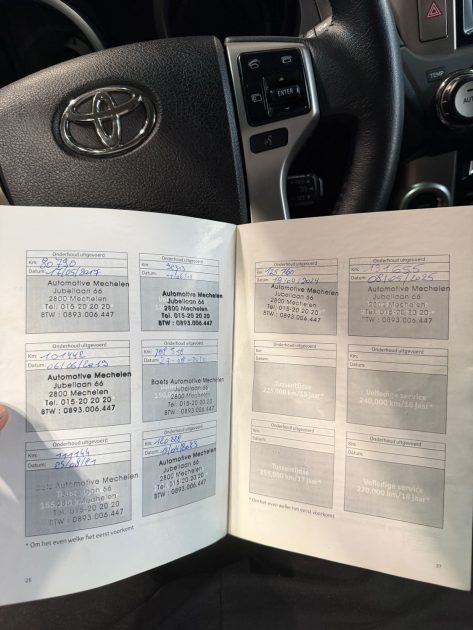 ENTER
TEMP
AUTO
Onderhoud uitgevoerd
Km: 80790
Datum: 17/05/2017
Automotive Mechelen
Jubellaan 66
2800 Mechelen
Tel. 015-20 20 20
BTW : 0893.006.447
Onderhoud uitgevoerd
Km:
Datum:
Automotive Mechelen
Jubellaan 66
2800 Mechelen
Tel. 015-20 20 20
BTW : 0893.006.447
Onderhoud uitgevoerd
Km: 101448
Datum: 06/06/2019
Automotive Mechelen
Jubellaan 66
2800 Mechelen
Tel. 015-20 20 20
BTW : 0893.006.447
Onderhoud uitgevoerd
Km:
Datum:
Baets Automotive Mechelen
Jubellaan 66
2800 Mechelen
Tel. 015-20 20 20
BTW : 0893.006.447
Onderhoud uitgevoerd
Km: 111144
Datum: 05/08/21
Baets Automotive Mechelen
Jubellaan 66
2800 Mechelen
Tel. 015-20 20 20
BTW : 0893.006.447
Onderhoud uitgevoerd
Km:
Datum:
Automotive Mechelen
Jubellaan 66
2800 Mechelen
Tel. 015-20 20 20
BTW : 0893.006.447
* Om het even welke het eerst voorkomt
26
Onderhoud uitgevoerd
Km: 125760
Datum: 19/04/2024
Automotive Mechelen
Jubellaan 66
2800 Mechelen
Tel. 015-20 20 20
BTW : 0893.006.447
Onderhoud uitgevoerd
Km: 131655
Datum: 08/05/2025
Automotive Mechelen
Jubellaan 66
2800 Mechelen
Tel. 015-20 20 20
BTW : 0893.006.447
Onderhoud uitgevoerd
Km:
Datum:
Tussentijdse
225.000 km/15 jaar*
Onderhoud uitgevoerd
Km:
Datum:
Volledige service
240.000 km/16 jaar*
Onderhoud uitgevoerd
Km:
Datum:
Tussentijdse
255.000 km/17 jaar*
Onderhoud uitgevoerd
Km:
Datum:
Volledige service
270.000 km/18 jaar*
* Om het even welke het eerst voorkomt
27